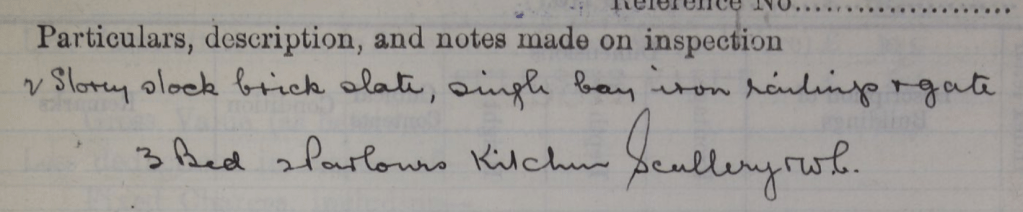 Reference No.....................
Particulars, description, and notes made on inspection
2 Storey stock brick slate, single bay iron railings & gate
3 Bed 2 Parlours Kitchen Scullery & W.C.